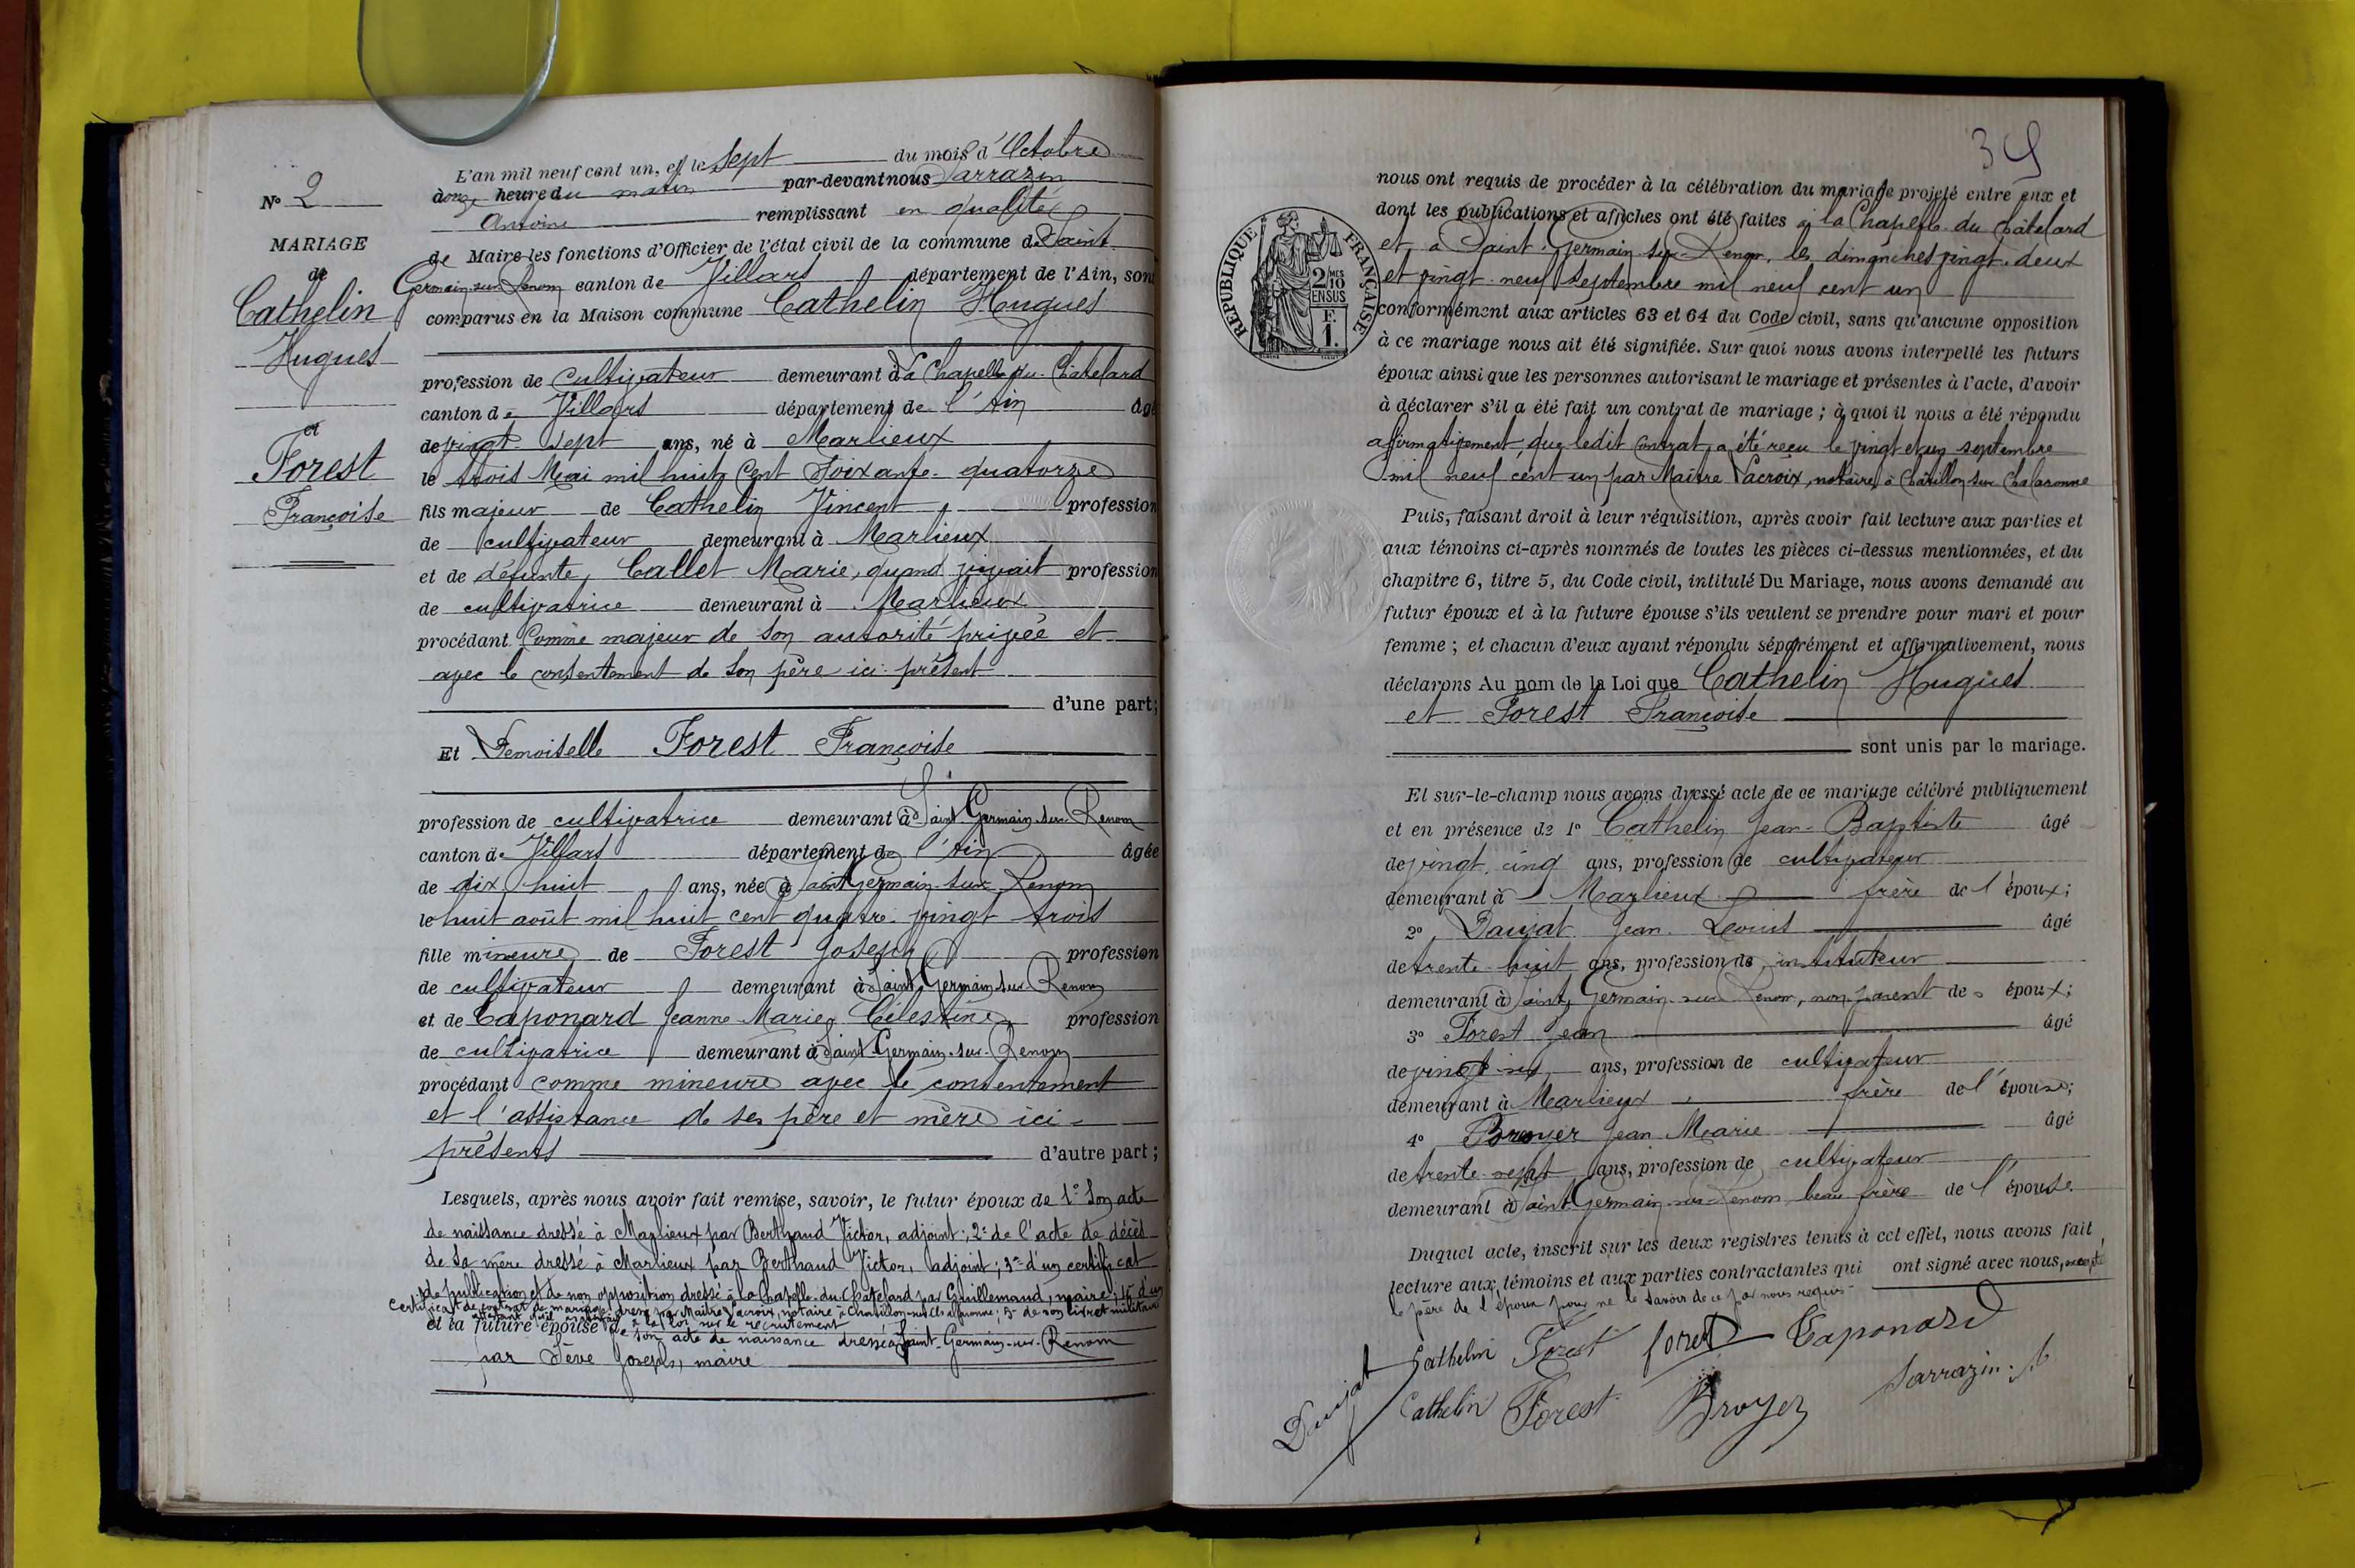 N° 2
MARIAGE
de
Cathelin
Hugues
et
Forest
Françoise
L'an mil neuf cent un, et le sept du mois d'Octobre
à onze heure du matin par-devant nous Sarrazin
Antoine remplissant en qualité
de Maire les fonctions d'Officier de l'état civil de la commune de Saint
Germain-sur-Renom canton de Villars département de l'Ain, sont
comparus en la Maison commune Cathelin Hugues
profession de cultivateur demeurant à La Chapelle-du-Châtelard
canton de Villars département de l'Ain âgé
de vingt sept ans, né à Marlieux
le trois Mai mil huit Cent Soixante-quatorze
fils majeur de Cathelin Vincent, profession
de cultivateur demeurant à Marlieux
et de défunte, Callet Marie, quand vivait profession
de cultivatrice demeurant à Marlieux
procédant Comme majeur de son autorité privée et
avec le consentement de son père ici présent
d'une part;
Et Demoiselle Forest Françoise
profession de cultivatrice demeurant à Saint-Germain-sur-Renom
canton de Villars département de l'Ain âgée
de dix huit ans, née à Saint Germain-sur-Renom
le huit août mil huit cent quatre-vingt trois
fille mineure de Forest Joseph profession
de cultivateur demeurant à Saint-Germain-sur-Renom
et de Caponard Jeanne-Marie Célestine, profession
de cultivatrice demeurant à Saint-Germain-sur-Renom
procédant comme mineure avec le consentement
et l'assistance de ses père et mère ici-
présents d'autre part;
Lesquels, après nous avoir fait remise, savoir, le futur époux de 1° Son acte
de naissance dressé à Marlieux par Berthaud Victor, adjoint; 2° de l'acte de décès
de sa mère dressé à Marlieux par Berthaud Victor, adjoint; 3° d'un certificat
de publication et de non opposition dressé à la Chapelle-du-Châtelard par Guillemaud, maire; 4° d'un
certificat de contrat de mariage dressé par Maître Lacroix, notaire à Chatillon-sur-Chalaronne; 5° de son livret militaire
attestant qu'il a satisfait à la loi sur le recrutement
et la future épouse de
son acte de naissance dressé à Saint-Germain-sur-Renom
par Sève Joseph, maire
39
RÉPUBLIQUE FRANÇAISE
2 MES
10
EN SUS
F.
1.
nous ont requis de procéder à la célébration du mariage projeté entre eux et
dont les publications et affiches ont été faites à la Chapelle-du-Châtelard
et à Saint-Germain-sur-Renom, les dimanches vingt-deux
et vingt-neuf Septembre mil neuf cent un
conformément aux articles 63 et 64 du Code civil, sans qu'aucune opposition
à ce mariage nous ait été signifiée. Sur quoi nous avons interpellé les futurs
époux ainsi que les personnes autorisant le mariage et présentes à l'acte, d'avoir
à déclarer s'il a été fait un contrat de mariage; à quoi il nous a été répondu
affirmativement, que ledit Contrat a été reçu le vingt et un septembre
mil neuf cent un par Maître Lacroix, notaire à Châtillon sur Chalaronne
Puis, faisant droit à leur réquisition, après avoir fait lecture aux parties et
aux témoins ci-après nommés de toutes les pièces ci-dessus mentionnées, et du
chapitre 6, titre 5, du Code civil, intitulé Du Mariage, nous avons demandé au
futur époux et à la future épouse s'ils veulent se prendre pour mari et pour
femme; et chacun d'eux ayant répondu séparément et affirmativement, nous
déclarons Au nom de la Loi que Cathelin Hugues
et Forest Françoise
sont unis par le mariage.
Et sur-le-champ nous avons dressé acte de ce mariage célébré publiquement
et en présence de 1° Cathelin Jean-Baptiste âgé
de vingt-cinq ans, profession de cultivateur
demeurant à Marlieux frère de l'époux;
2° Daujat Jean Louis âgé
de trente-huit ans, profession de instituteur
demeurant à Saint-Germain-sur-Renom, non parent des époux;
3° Forest Jean âgé
de vingt-six ans, profession de cultivateur
demeurant à Marlieux frère de l'épouse;
4° Broyer Jean Marie âgé
de trente-sept ans, profession de cultivateur
demeurant à Saint-Germain-sur-Renom beau frère de l'épouse
Duquel acte, inscrit sur les deux registres tenus à cet effet, nous avons fait
lecture aux témoins et aux parties contractantes qui ont signé avec nous, excepté
le père de l'époux pour ne le savoir de ce par nous requis
Cathelin Forest forest Caponard
Daujat Cathelin Forest Broyer Sarrazin. A